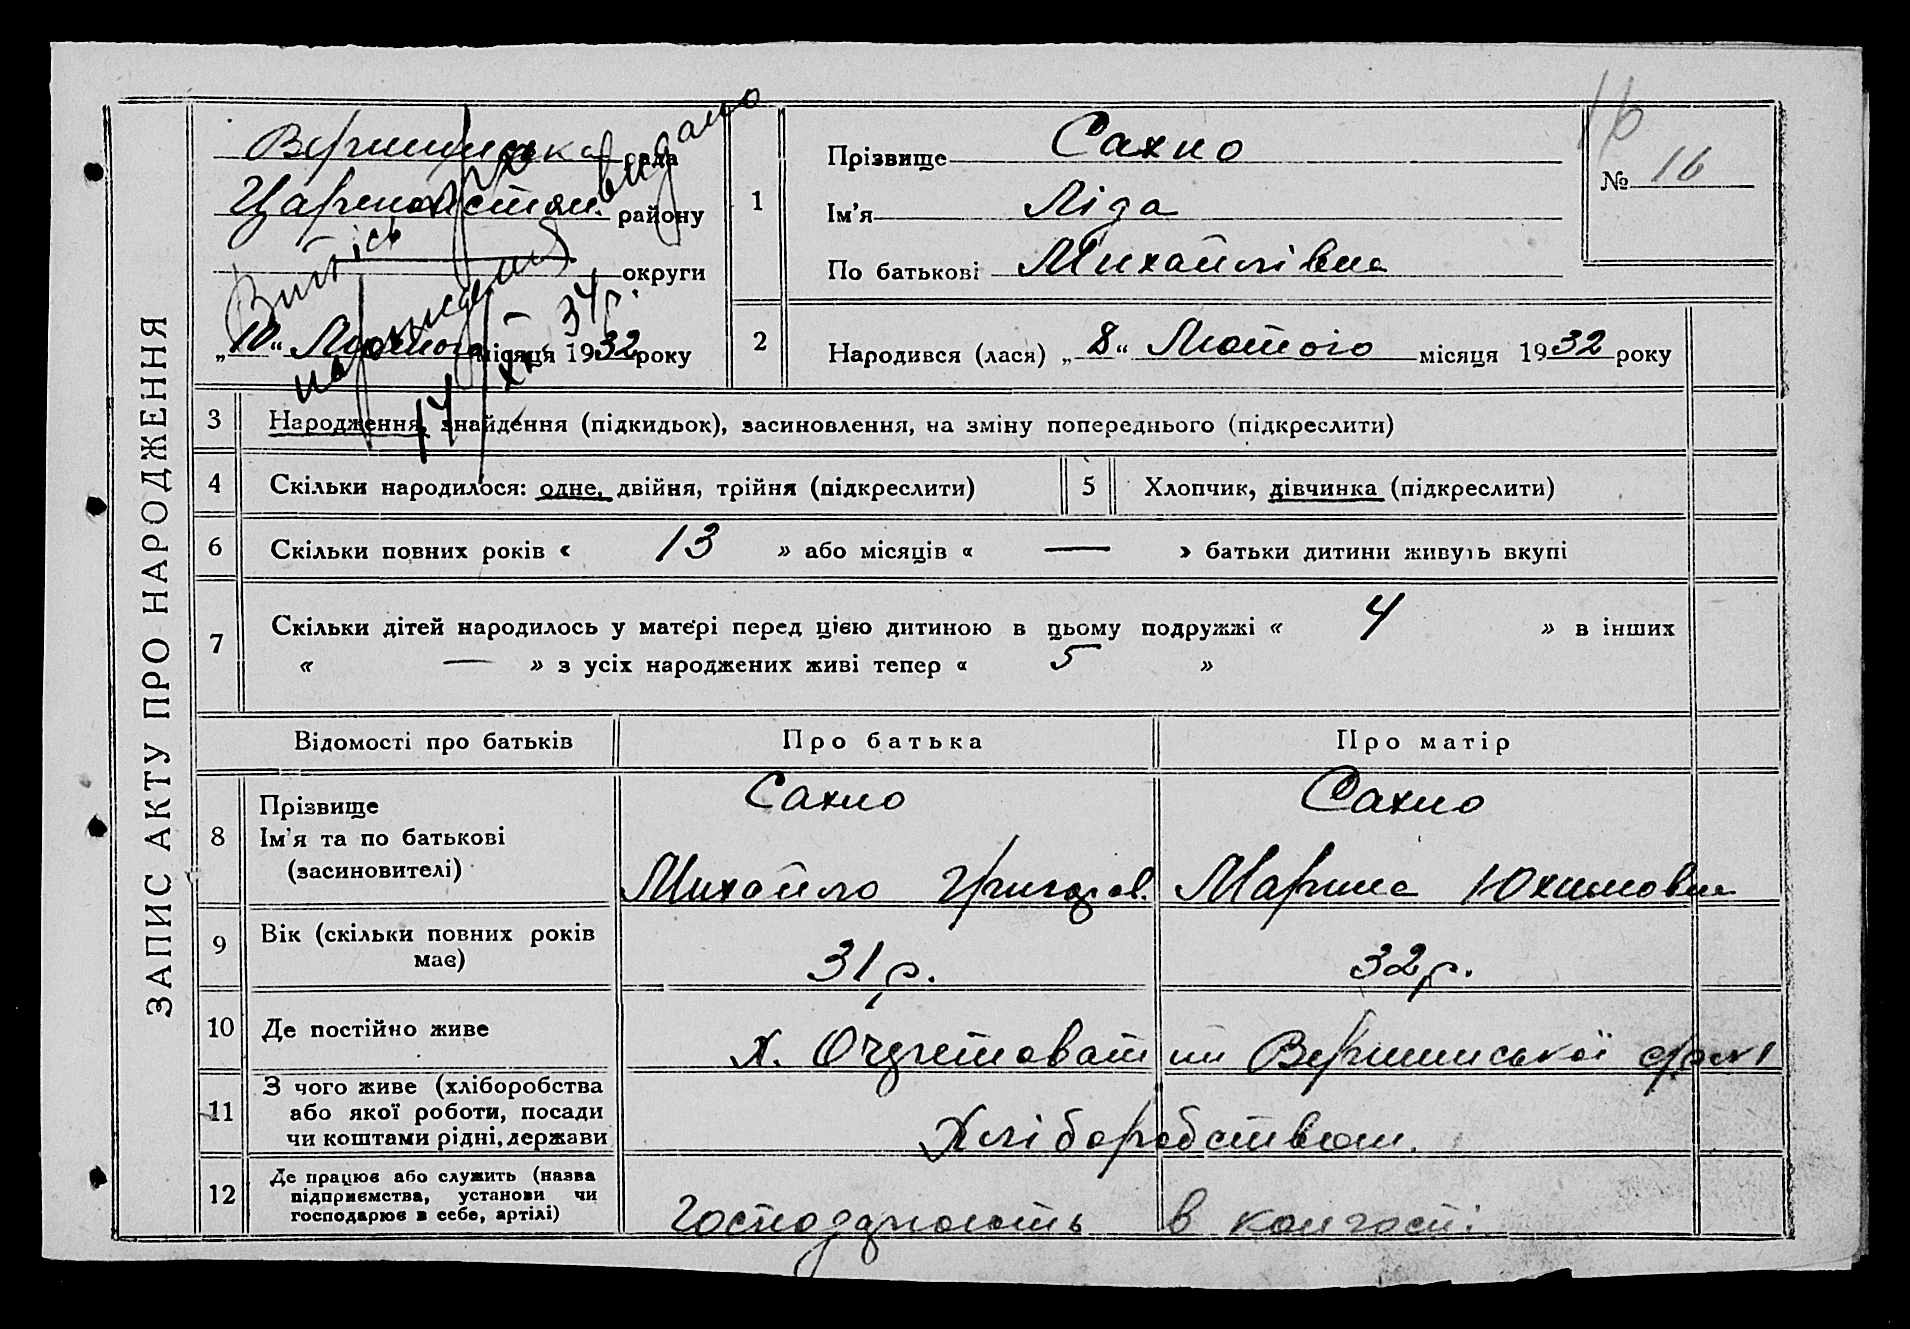 ЗАПИС АКТУ ПРО НАРОДЖЕННЯ
Вершинська рада
району
округи
„10“ Лютого місяця 1932 року
Витіс
видано
17 34 р.
1
Прізвище Сахно
Ім’я Ліда
По батькові Михайлівна
16
№ 16
2
Народився (лася) „8“ Лютого місяця 1932 року
3 Народження, знайдення (підкидьок), засиновлення, на зміну попереднього (підкреслити)
4 Скільки народилося: одне, двійня, трійня (підкреслити) 5 Хлопчик, дівчинка (підкреслити)
6 Скільки повних років « 13 » або місяців « — » батьки дитини живуть вкупі
7 Скільки дітей народилось у матері перед цією дитиною в цьому подружжі « 4 » в інших
« — » з усіх народжених живі тепер « 5 »
Відомості про батьків Про батька Про матір
8 Прізвище Сахно Сахно
Ім’я та по батькові
(засиновителі) Михайло Григоров. Марина Юхимовна
9 Вік (скільки повних років
має) 31 р. 32 р.
10 Де постійно живе х. Очеретоватий Вершинської с/ради
11 З чого живе (хліборобства
або якої роботи, посади
чи коштами рідні, держави Хліборобством.
12 Де працює або служить (назва
підприємства, установи чи
господарює в себе, артілі) Господарюють в колгоспі